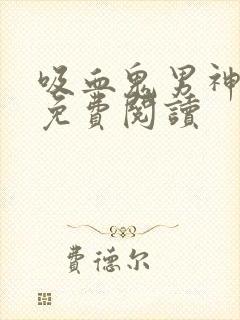 吸血鬼男神
免費閱讀
費德尔